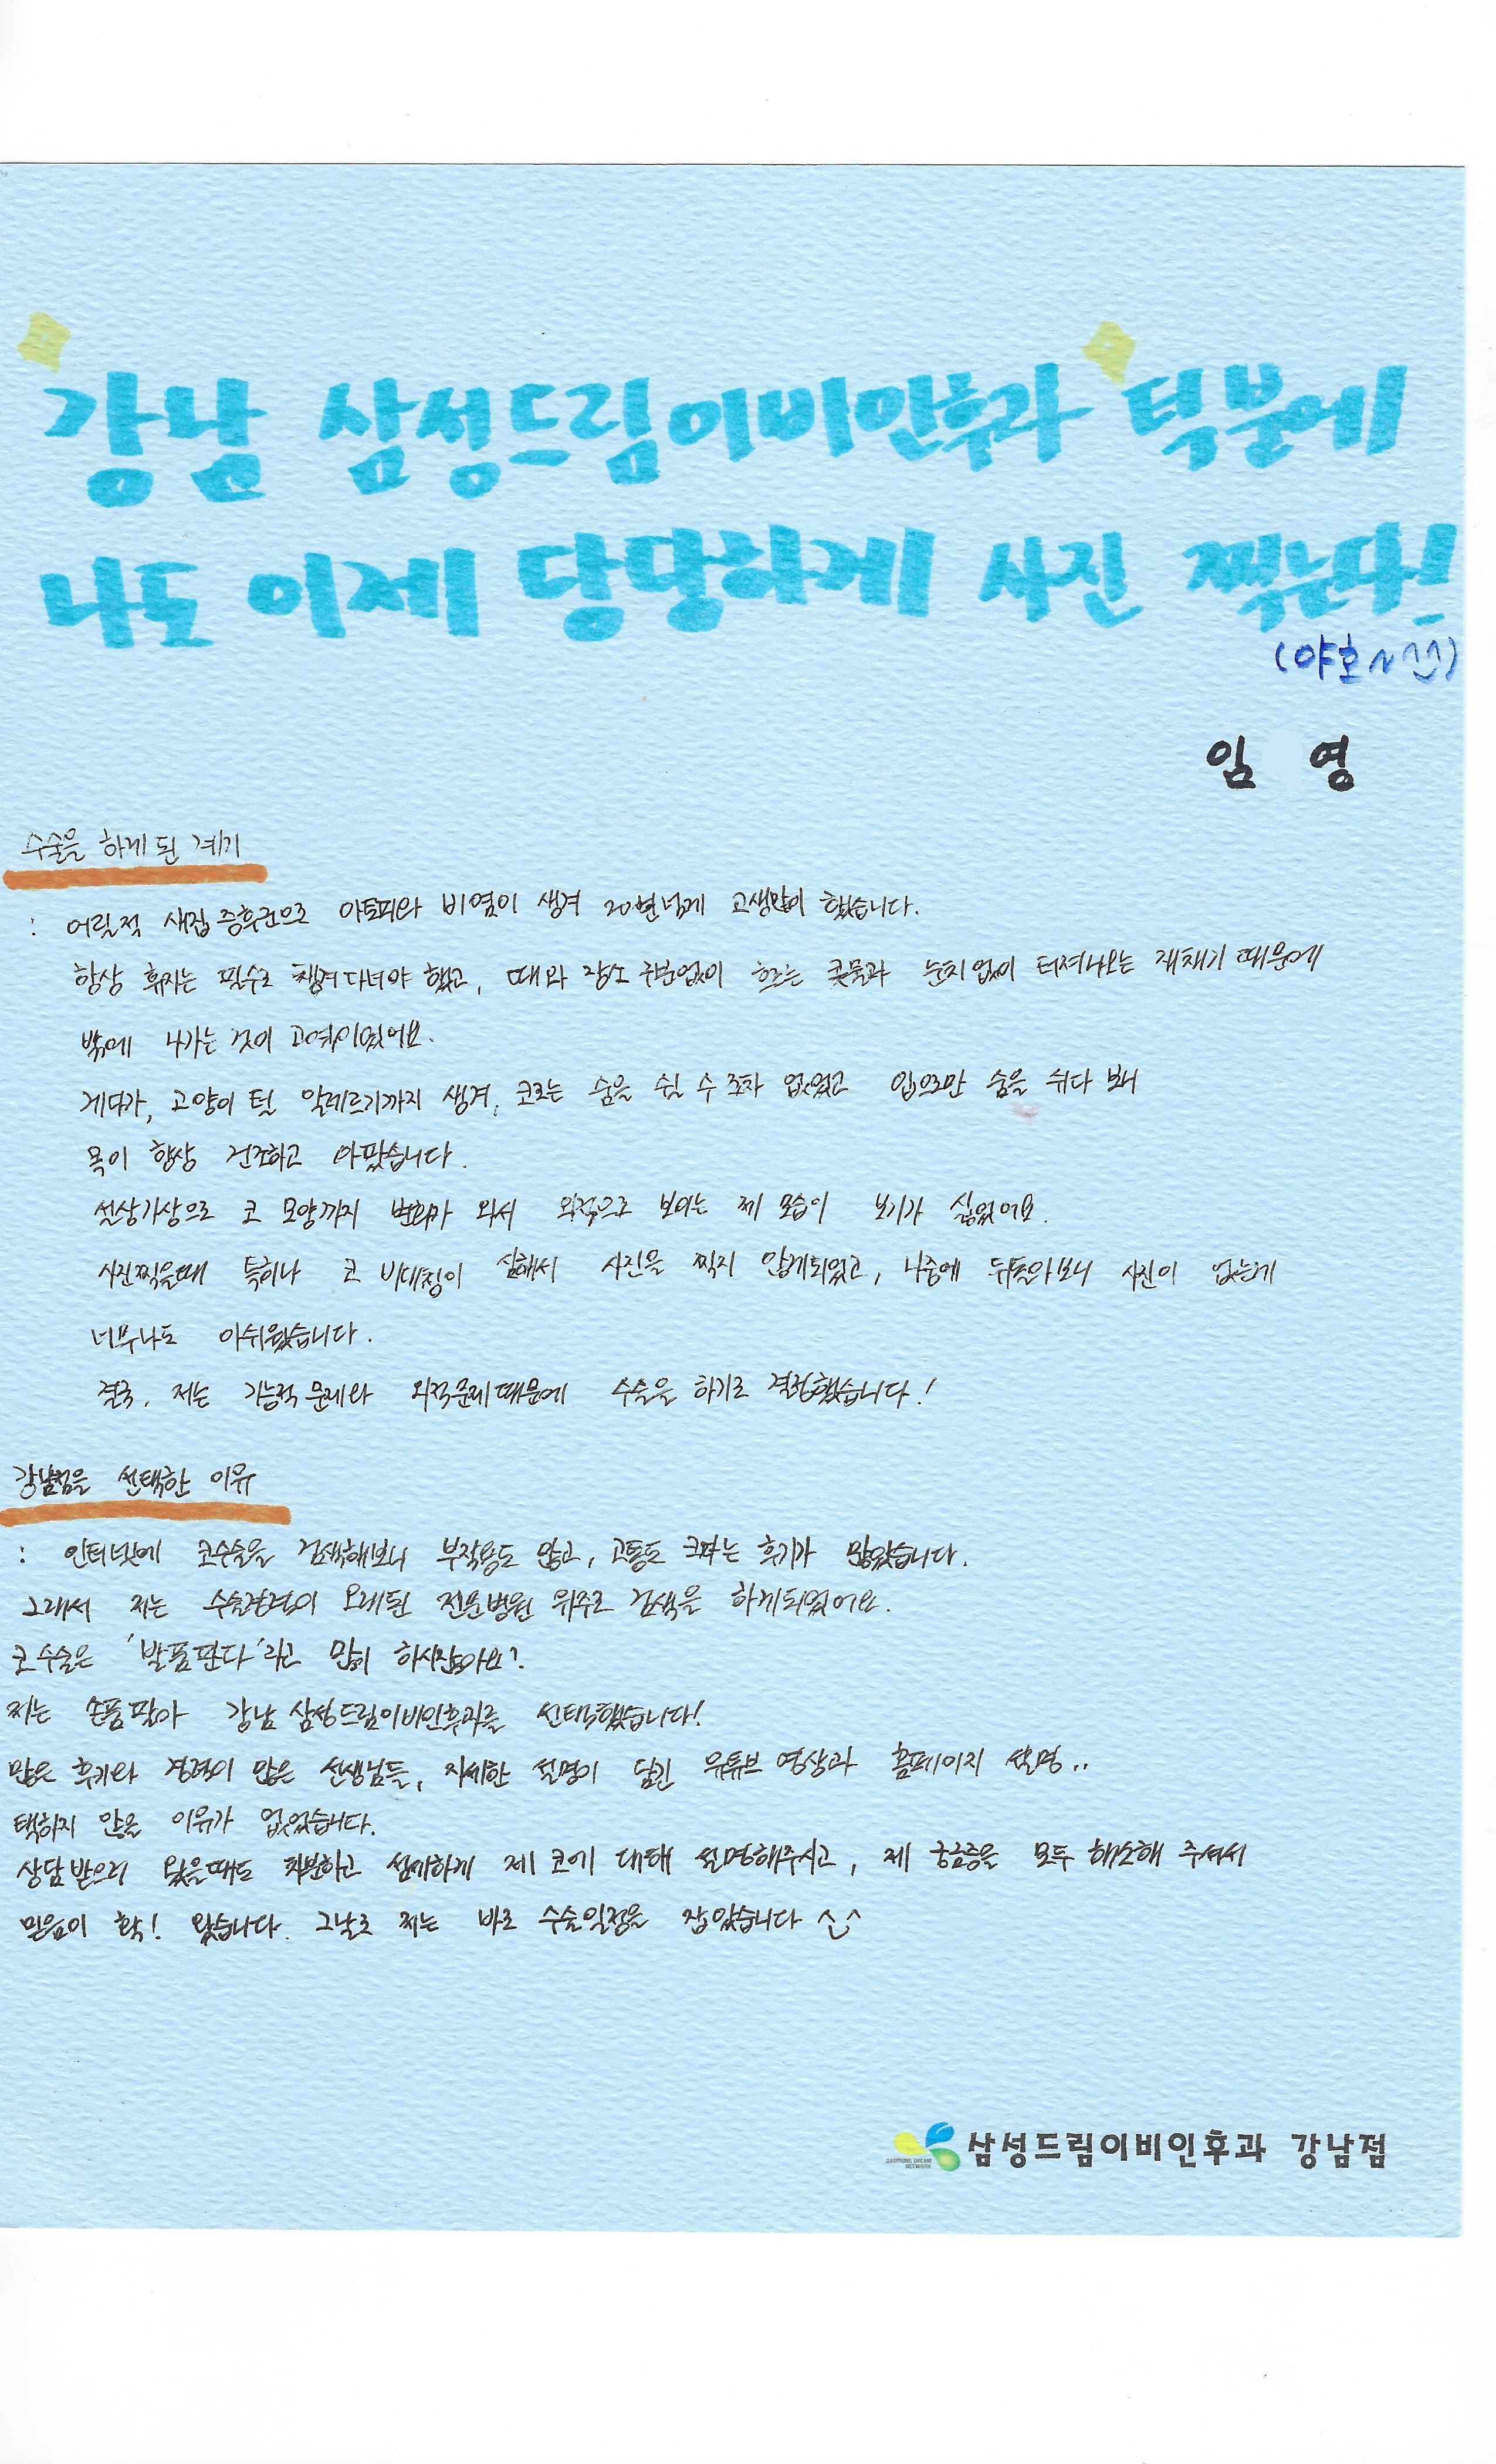 강남 삼성드림이비인후과 덕분에
나도 이제 당당하게 사진 찍는다!
(야호~^^)
임 영
수술을 하게 된 계기
: 어릴적 새집증후군으로 아토피와 비염이 생겨 20년넘게 고생많이 했습니다.
항상 휴지는 필수로 챙겨다녀야 했고, 때와 장소 구분없이 흐르는 콧물과 눈치없이 터져나오는 재채기 때문에
밖에 나가는 것이 고역이었어요.
게다가, 고양이 털 알레르기까지 생겨, 코로는 숨을 쉴 수 조차 없었고 입으로만 숨을 쉬다 보니
목이 항상 건조하고 아팠습니다.
설상가상으로 코 모양까지 변화가 와서 외적으로 보이는 제 모습이 보기가 싫었어요.
사진찍을때 특히나 코 비대칭이 심해서 사진을 찍지 않게되었고, 나중에 뒤돌아보니 사진이 없는게
너무나도 아쉬웠습니다.
결국, 저는 기능적 문제와 외적문제때문에 수술을 하기로 결정했습니다!
강남점을 선택한 이유
: 인터넷에 코수술을 검색해보니 부작용도 많고, 고통도 크다는 후기가 많았습니다.
그래서 저는 수술경력이 오래된 전문병원 위주로 검색을 하게되었어요.
코수술은 '발품판다'라고 많이 하시잖아요?
저는 손품팔아 강남 삼성드림이비인후과를 선택했습니다!
많은 후기와 경력이 많은 선생님들, 자세한 설명이 담긴 유튜브 영상과 홈페이지 설명..
택하지 않을 이유가 없었습니다.
상담받으러 왔을때도 차분하고 섬세하게 제 코에 대해 설명해주시고, 제 궁금증을 모두 해소해 주셔서
믿음이 확! 왔습니다. 그날로 저는 바로 수술일정을 잡았습니다 ^^
SAMSUNG DREAM
NETWORK
삼성드림이비인후과 강남점